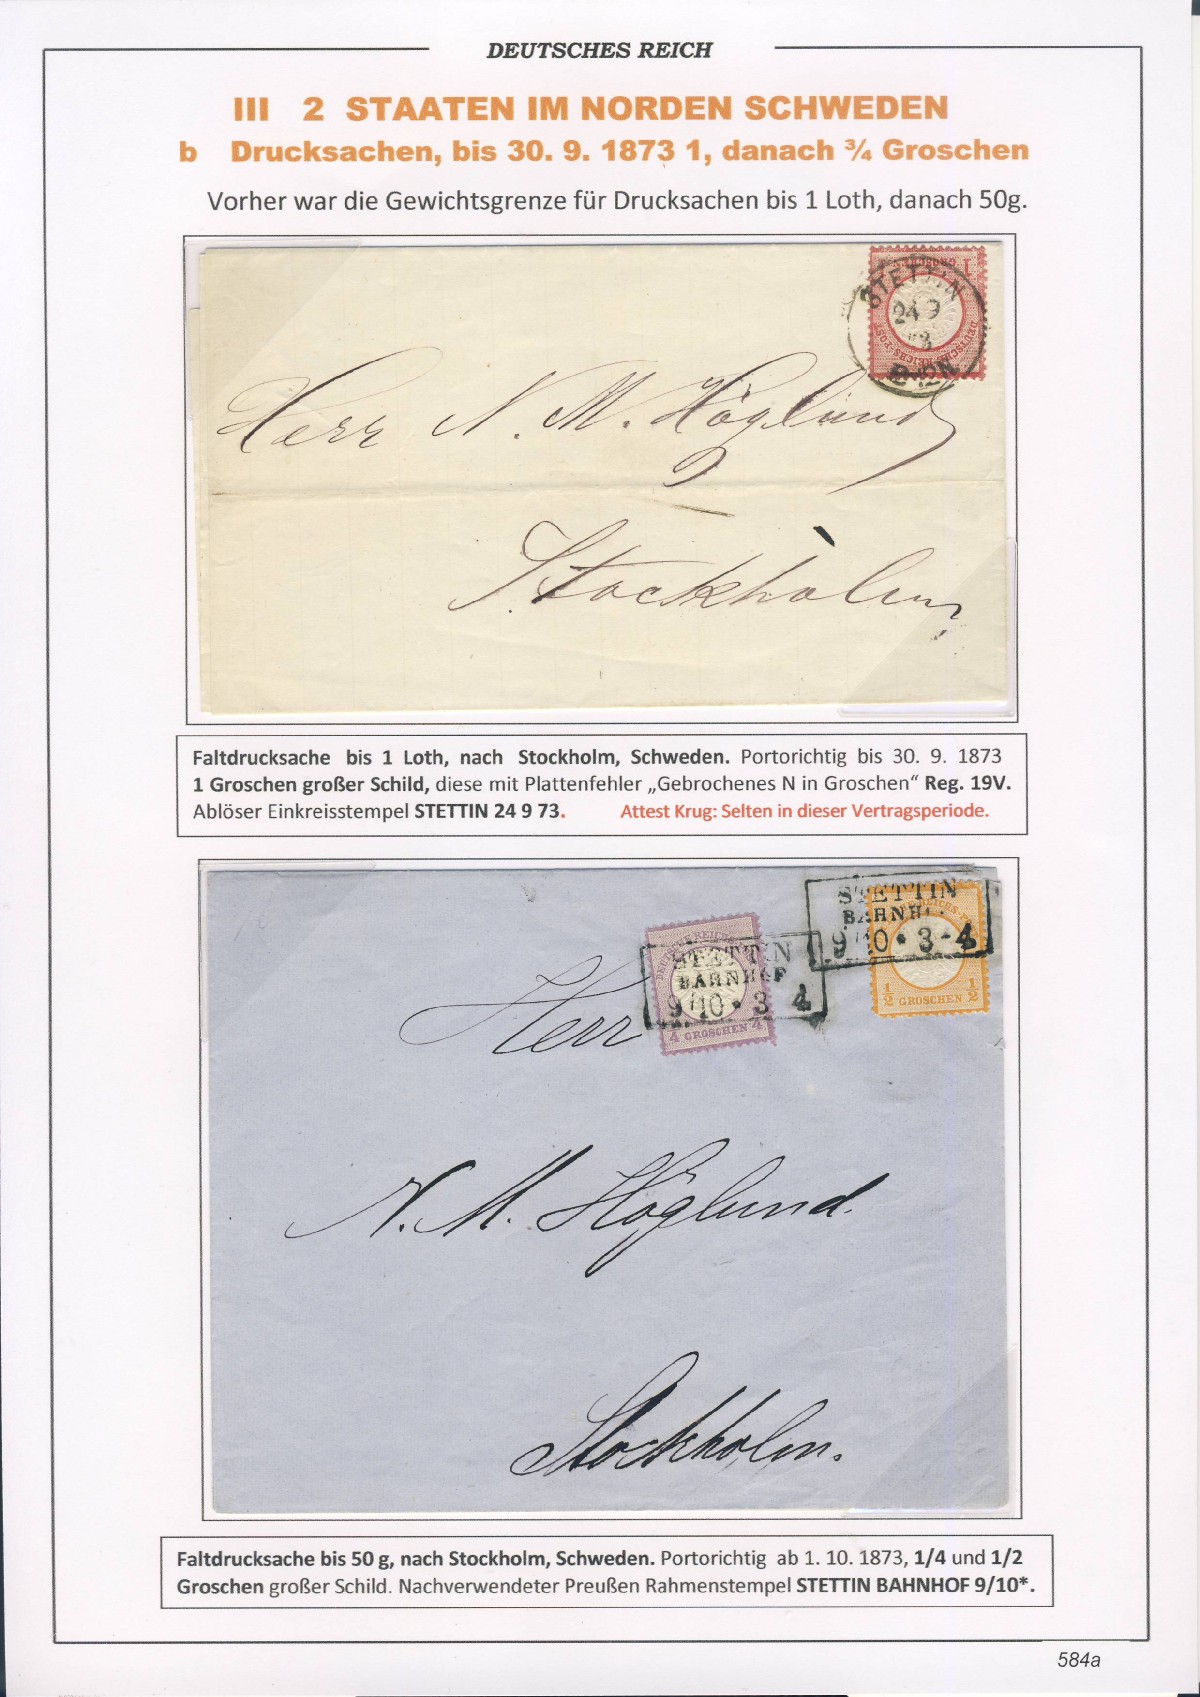 DEUTSCHES REICH
III 2 STAATEN IM NORDEN SCHWEDEN
b Drucksachen, bis 30. 9. 1873 1, danach ¾ Groschen
Vorher war die Gewichtsgrenze für Drucksachen bis 1 Loth, danach 50g.
STETTIN
24 9
DEUTSCHE REICHS-POST
Herr N. M. Höglund
Stockholm
Faltdrucksache bis 1 Loth, nach Stockholm, Schweden. Portorichtig bis 30. 9. 1873
1 Groschen großer Schild, diese mit Plattenfehler „Gebrochenes N in Groschen“ Reg. 19V.
Ablöser Einkreisstempel STETTIN 24 9 73. Attest Krug: Selten in dieser Vertragsperiode.
STETTIN
BAHNH
9/10 • 3-4
½ GROSCHEN ½
STETTIN
BAHNHOF
9/10 • 3 4
4 GROSCHEN 4
Herr
N. M. Höglund.
Stockholm.
Faltdrucksache bis 50 g, nach Stockholm, Schweden. Portorichtig ab 1. 10. 1873, 1/4 und 1/2
Groschen großer Schild. Nachverwendeter Preußen Rahmenstempel STETTIN BAHNHOF 9/10*.
584a